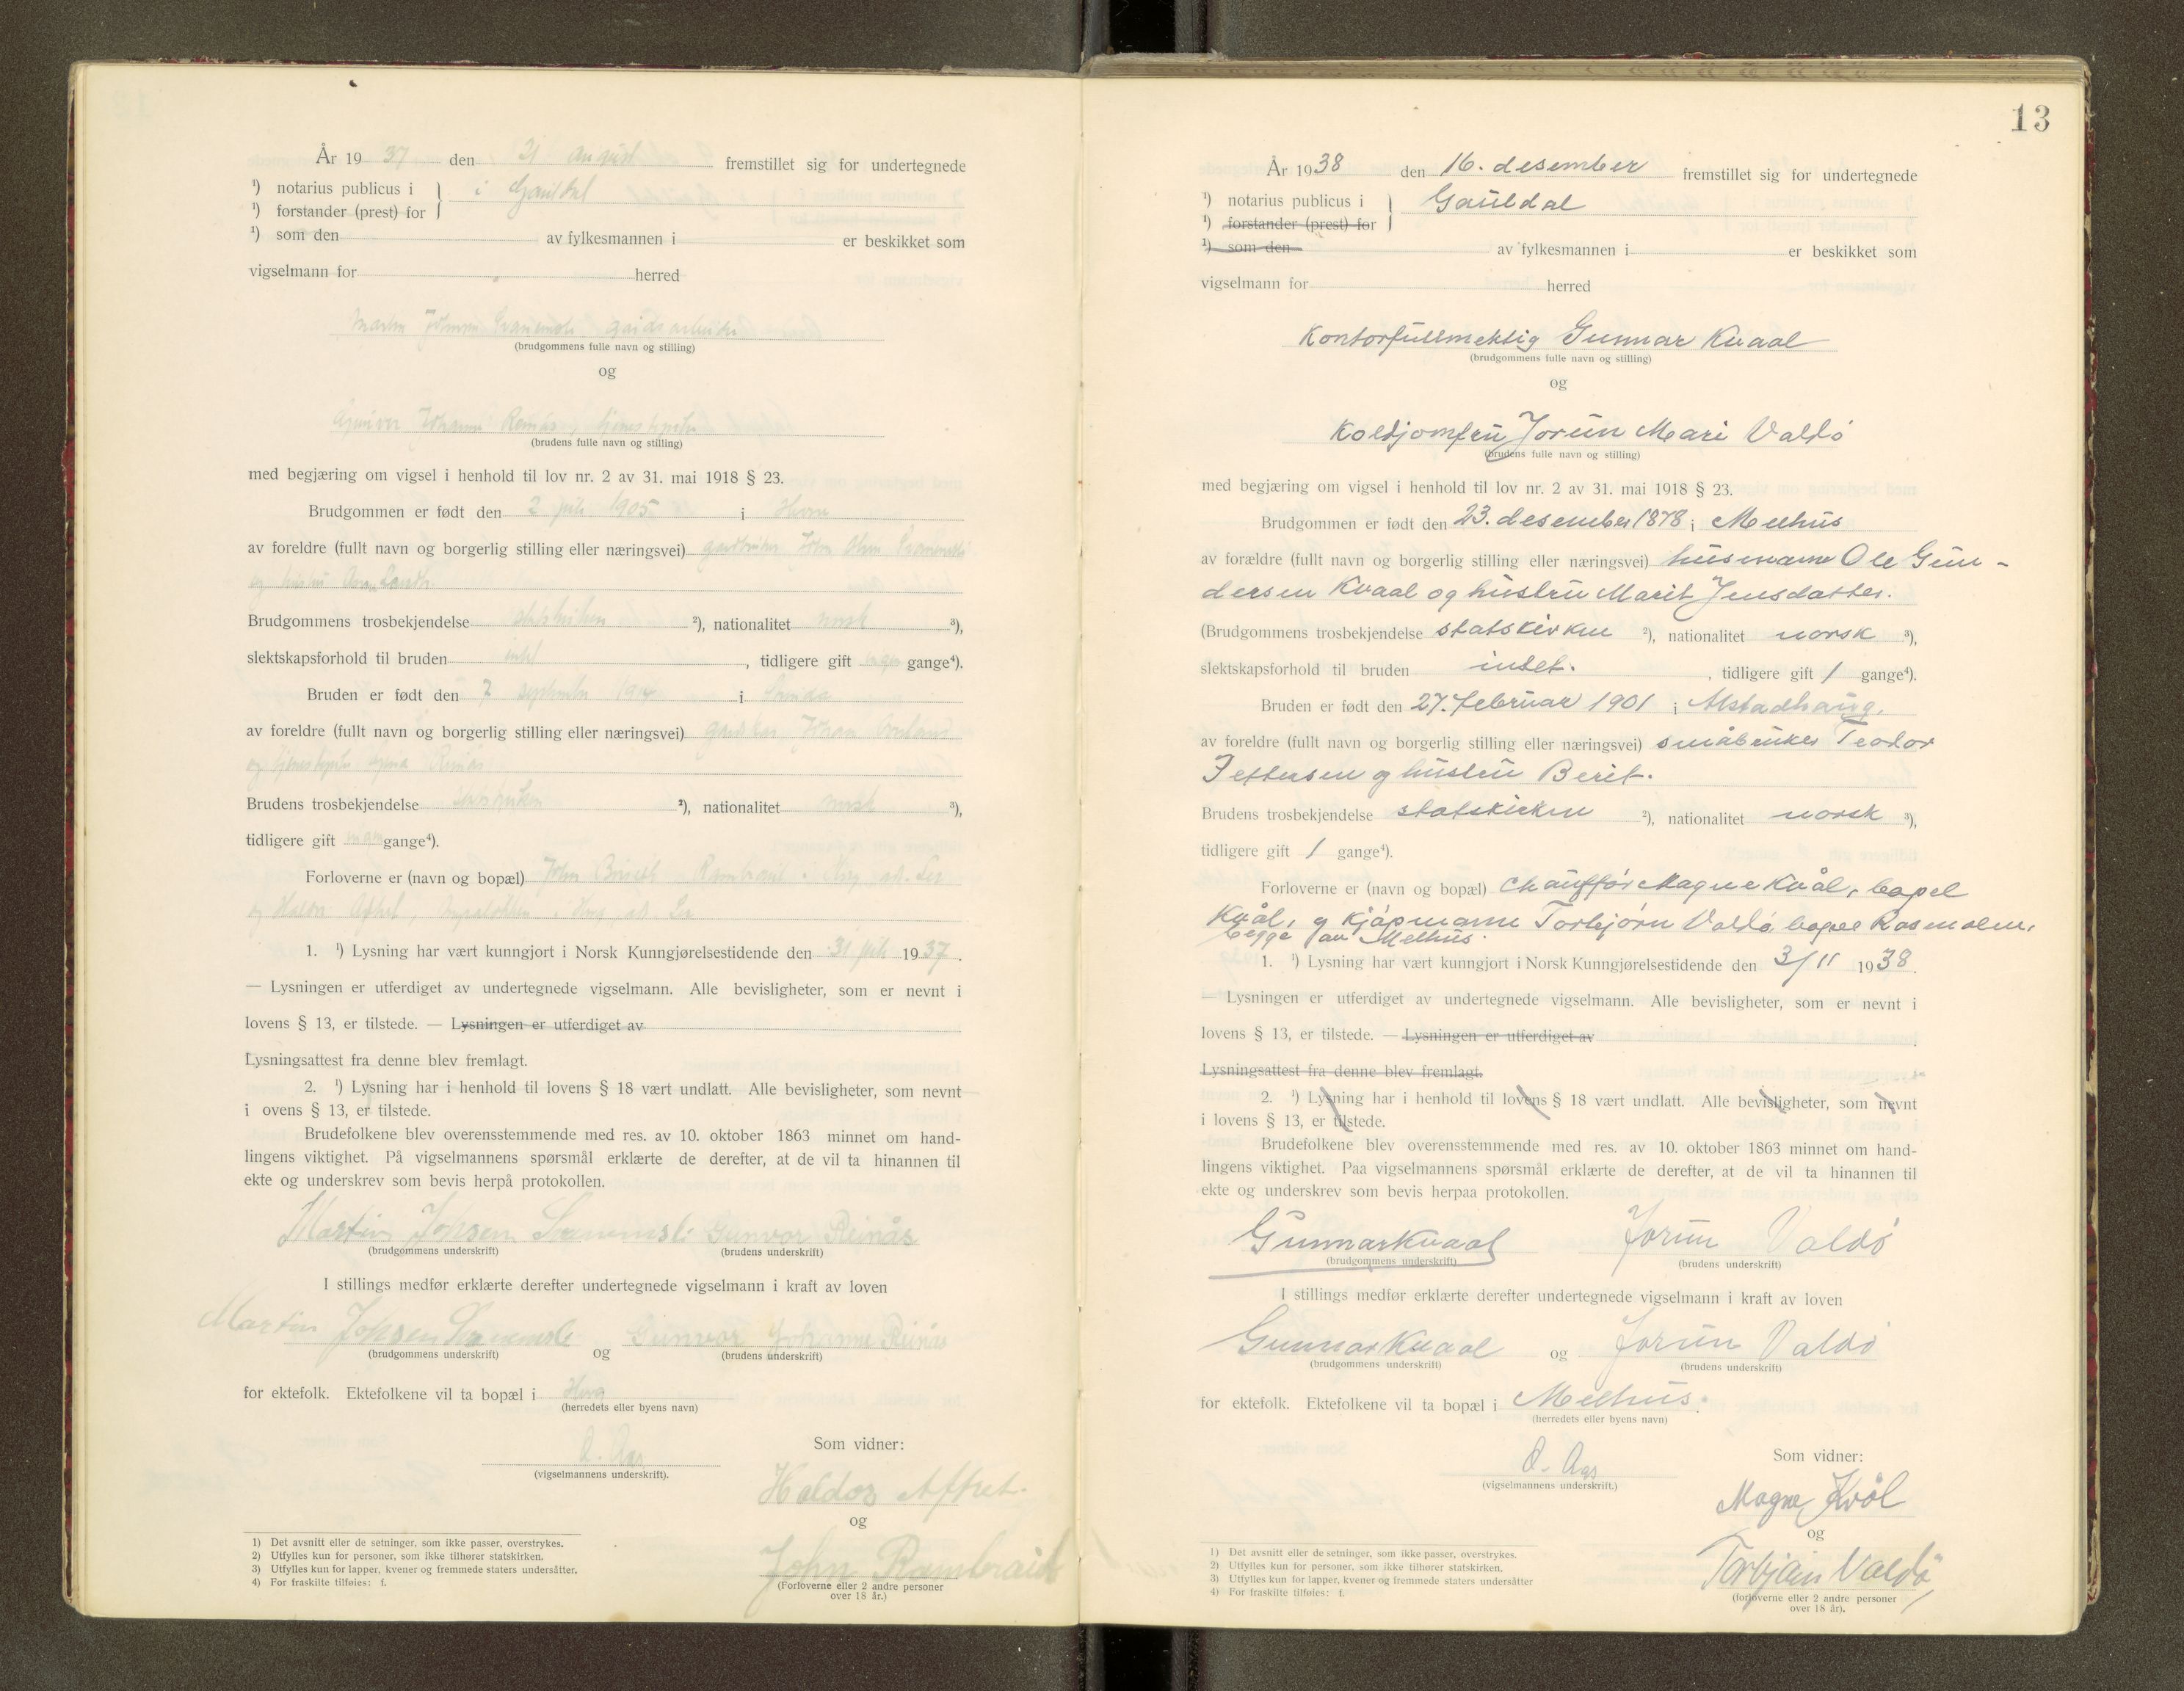 År 19 37 den 21 august fremstillet sig for undertegnede
¹) notarius publicus i } i Gauldal
¹) forstander (prest) for
¹) som den av fylkesmannen i er beskikket som
vigselmann for herred
Martin Johnsen gårdsarbeider
(brudgommens fulle navn og stilling)
og
Johanne Reinås, tjenestepike
(brudens fulle navn og stilling)
med begjæring om vigsel i henhold til lov nr. 2 av 31. mai 1918 § 23.
Brudgommen er født den 2 juli 1905 i
av foreldre (fullt navn og borgerlig stilling eller næringsvei) gardbruker John Olsen
og hustru
Brudgommens trosbekjendelse statskirken ²), nationalitet norsk ³),
slektskapsforhold til bruden intet, tidligere gift ingen gange⁴).
Bruden er født den 7 september i
av foreldre (fullt navn og borgerlig stilling eller næringsvei) Johan
og Reinås
Brudens trosbekjendelse statskirken ²), nationalitet norsk ³),
tidligere gift gange⁴).
Forloverne er (navn og bopæl) John
og Haldor Aftret,
1. ¹) Lysning har vært kunngjort i Norsk Kunngjørelsestidende den 31 juli 1937.
— Lysningen er utferdiget av undertegnede vigselmann. Alle bevisligheter, som er nevnt i
lovens § 13, er tilstede. — Lysningen er utferdiget av
Lysningsattest fra denne blev fremlagt.
2. ¹) Lysning har i henhold til lovens § 18 vært undlatt. Alle bevisligheter, som nevnt
i ovens § 13, er tilstede.
Brudefolkene blev overensstemmende med res. av 10. oktober 1863 minnet om hand-
lingens viktighet. På vigselmannens spørsmål erklærte de derefter, at de vil ta hinannen til
ekte og underskrev som bevis herpå protokollen.
Martin Johsen Gunvor Reinås
(brudgommens underskrift) (brudens underskrift)
I stillings medfør erklærte derefter undertegnede vigselmann i kraft av loven
Martin Johsen og Gunvor Johanne Reinås
(brudgommens underskrift) (brudens underskrift)
for ektefolk. Ektefolkene vil ta bopæl i
(herredets eller byens navn)
O. Aas
(vigselmannens underskrift).
Som vidner:
Haldor Aftret.
og
John Rambraut
(Forloverne eller 2 andre personer
over 18 år.)
1) Det avsnitt eller de setninger, som ikke passer, overstrykes.
2) Utfylles kun for personer, som ikke tilhører statskirken.
3) Utfylles kun for lapper, kvener og fremmede staters undersåtter.
4) For fraskilte tilføies: f.
13
År 1938 den 16. desember fremstillet sig for undertegnede
¹) notarius publicus i } Gauldal
¹) forstander (prest) for
¹) som den av fylkesmannen i er beskikket som
vigselmann for herred
Kontorfullmektig Gunnar Kvaal
(brudgommens fulle navn og stilling)
og
Koldjomfru Jorun Mari Valdø
(brudens fulle navn og stilling)
med begjæring om vigsel i henhold til lov nr. 2 av 31. mai 1918 § 23.
Brudgommen er født den 23. desember 1878 i Melhus
av forældre (fullt navn og borgerlig stilling eller næringsvei) husmann Ole Gun-
dersen Kvaal og hustru Marit Jensdatter.
(Brudgommens trosbekjendelse statskirken ²), nationalitet norsk ³),
slektskapsforhold til bruden intet. , tidligere gift 1 gange⁴).
Bruden er født den 27. februar 1901 i Alstadhaug.
av foreldre (fullt navn og borgerlig stilling eller næringsvei) småbruker Teodor
Pettersen og hustru Berit.
Brudens trosbekjendelse statskirken ²), nationalitet norsk ³),
tidligere gift 1 gange⁴).
Forloverne er (navn og bopæl) chauffør Magne Kvål, bopel
Kvål, og kjøpmann Torbjørn Valdø, bopel Rosmolen,
begge av Melhus.
1. ¹) Lysning har vært kunngjort i Norsk Kunngjørelsestidende den 3/11 1938.
— Lysningen er utferdiget av undertegnede vigselmann. Alle bevisligheter, som er nevnt i
lovens § 13, er tilstede. — Lysningen er utferdiget av
Lysningsattest fra denne blev fremlagt.
2. ¹) Lysning har i henhold til lovens § 18 vært undlatt. Alle bevisligheter, som nevnt
i lovens § 13, er tilstede.
Brudefolkene blev overensstemmende med res. av 10. oktober 1863 minnet om hand-
lingens viktighet. Paa vigselmannens spørsmål erklærte de derefter, at de vil ta hinannen til
ekte og underskrev som bevis herpaa protokollen.
Gunnar Kvaal Jorun Valdø
(brudgommens underskrift) (brudens underskrift)
I stillings medfør erklærte derefter undertegnede vigselmann i kraft av loven
Gunnar Kvaal og Jorun Valdø
(brudgommens underskrift) (brudens underskrift)
for ektefolk. Ektefolkene vil ta bopæl i Melhus.
(herredets eller byens navn)
O. Aas
(vigselmannens underskrift.)
Som vidner:
Magne Kvål
og
Torbjørn Valdø
(forloverne eller 2 andre personer
over 18 år).
1) Det avsnitt eller de setninger, som ikke passer, overstrykes.
2) Utfylles kun for personer, som ikke tilhører statskirken.
3) Utfylles kun for lapper, kvener og fremmede staters undersåtter
4) For fraskilte tilføies: f.